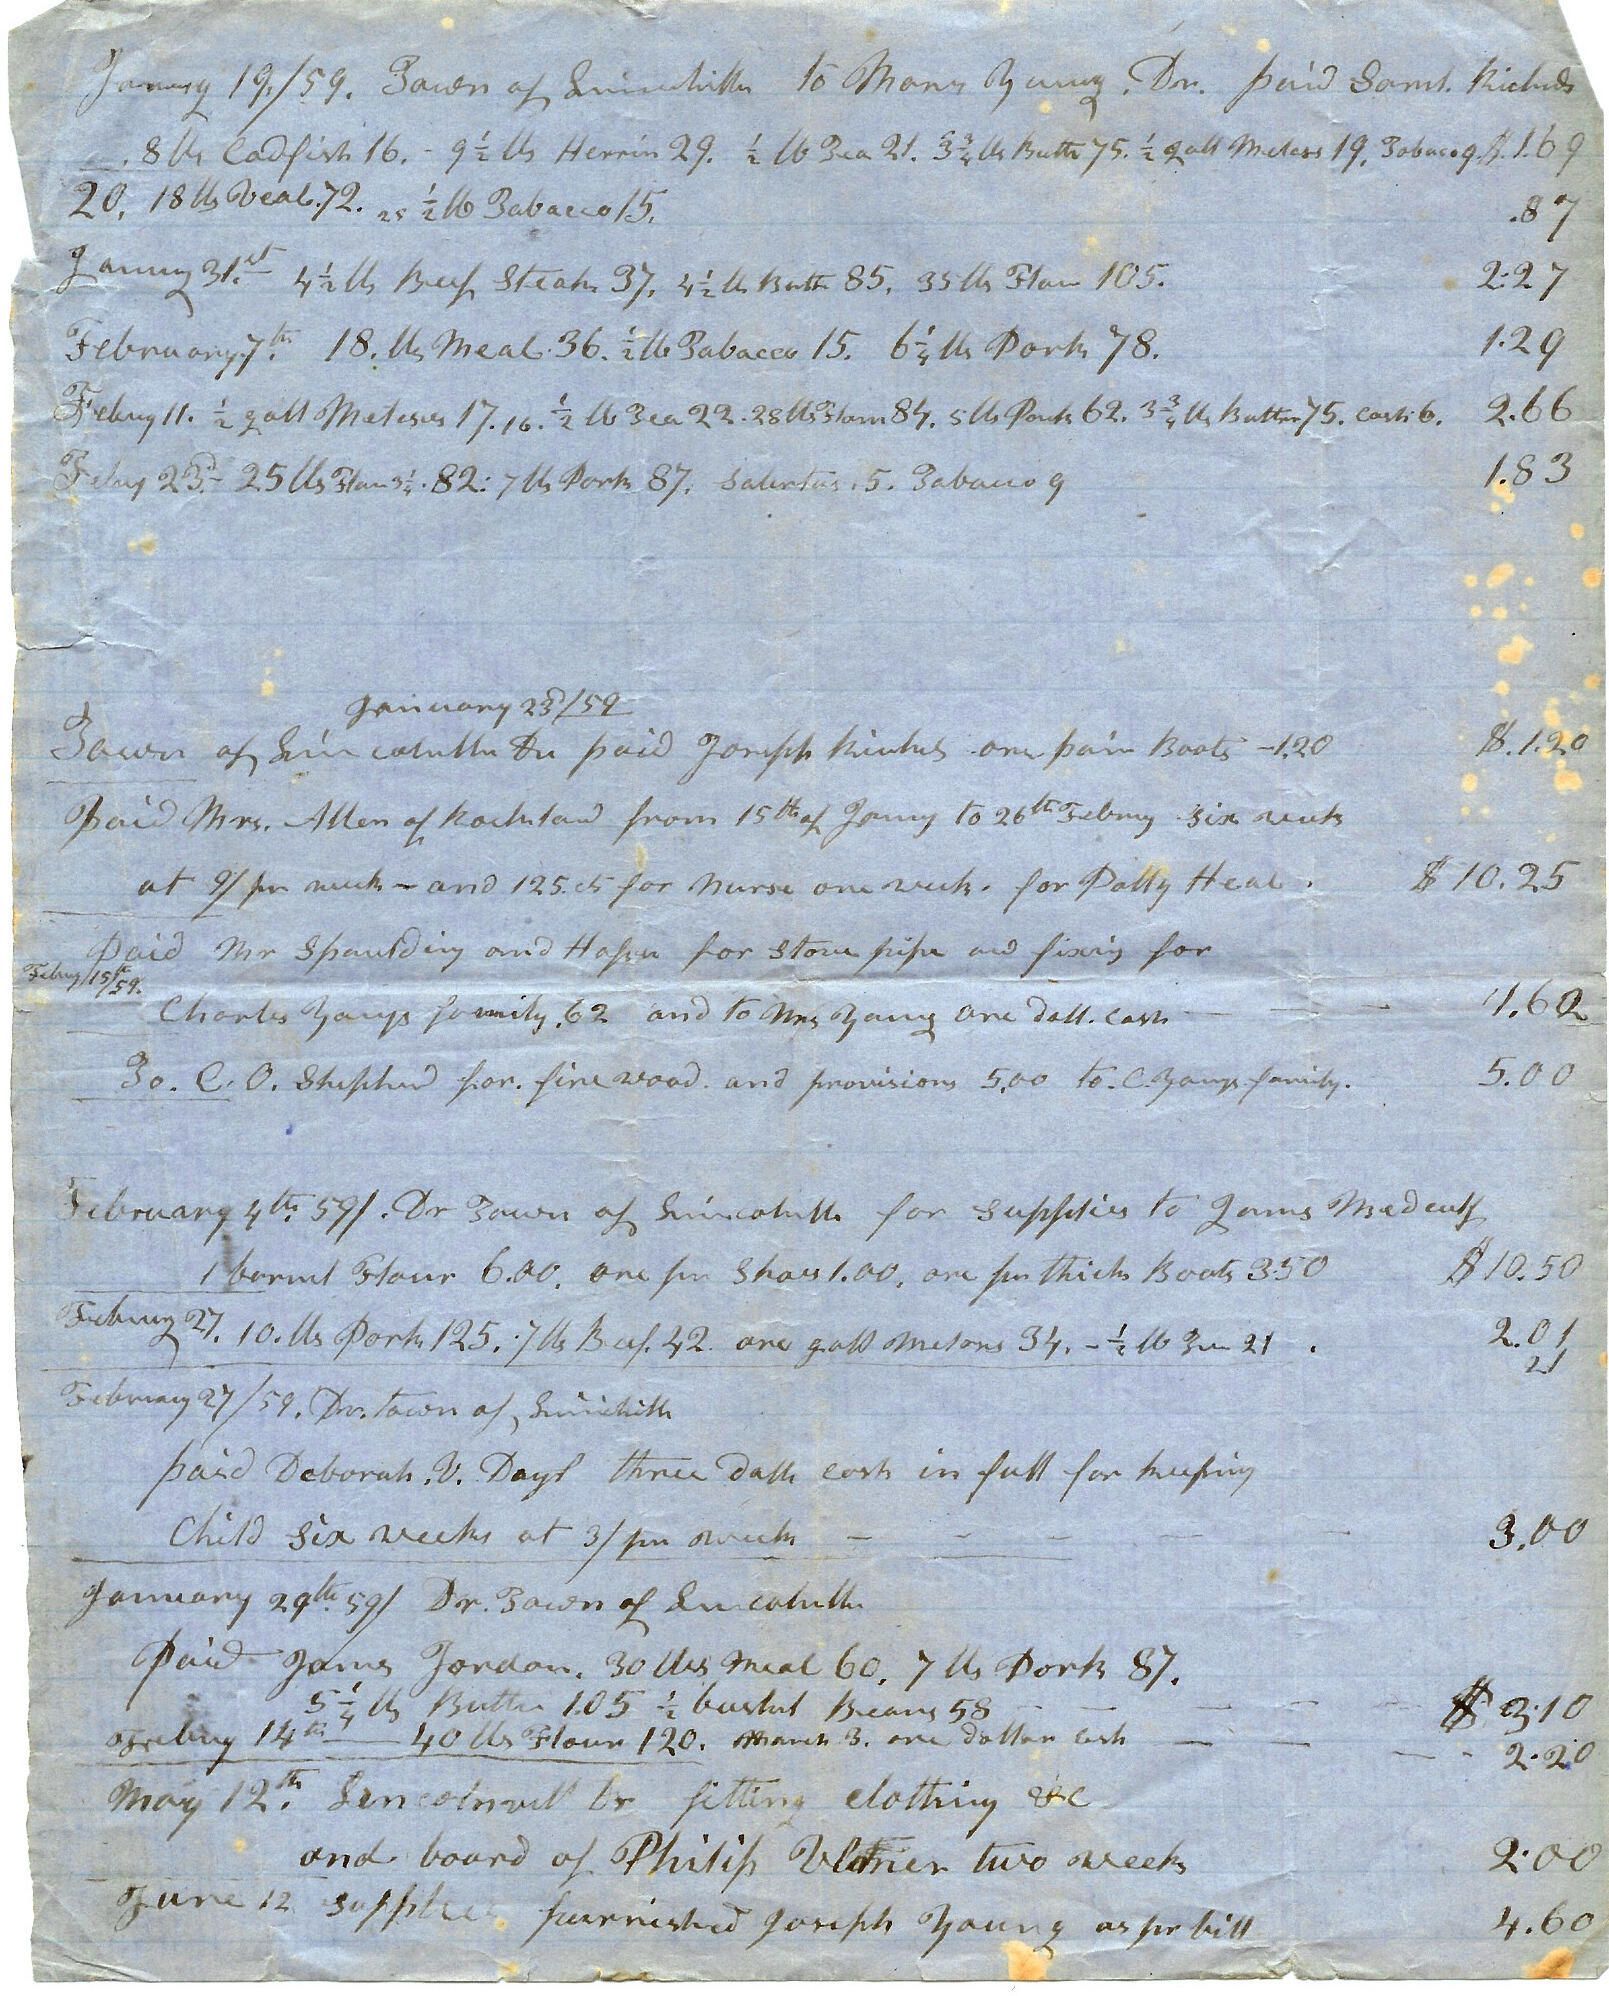 January 19/59. Town of Lincolnville to Mary Young. Dr. paid Saml. Richards
8 lbs Codfish 16. - 9 1/2 lbs Herrin 29. 1/2 lb Tea 21. 3 3/4 lbs Butter 75. 1/2 gall Melass 19. Tobacco 9. $.1.69
20. 18 lbs Veal. 72. 1/2 lb Tabacco 15. .87
January 31.st 4 1/2 lbs Beef Steak 37. 4 1/2 lb Butter 85. 35 lbs Flour 105. 2.27
February 7th. 18. lbs Meal. 36. 1/2 lb Tabacco 15. 6 1/4 lbs Pork 78. 1.29
Febuy 11. 1/2 gall Melases 17. 16. 1/2 lb Tea 22. 28 lbs Flour 84. 5 lbs Pork 62. 3 3/4 lbs Butter 75. Cash 6. 2.66
Febuy 23d. 25 lbs Flour 3 1/4. 82: 7 lbs Pork 87. Salertus. 5. Tabacco 9 1.83
January 23d/59
Town of Lincolnville Dr paid Joseph Richards one pair Boots - 1.20 $.1.20
Paid Mrs. Allen of Rockland from 15th of Jany to 26th Febuy six weeks
at 9/ pr week - and 125.cts for nurse one week. for Polly Heal. $10.25
Paid Mr Spaulding and for Stove pipe and fixing for
Febuy 15th/59.
Charles Youngs family .62 and to Mrs Young one doll. cash 1.62
To. C. O. Shepherd for. fire wood. and provisions 5.00 to. C. Youngs family. 5.00
February 4th. 59/. Dr Town of Lincolnville for supplies to James Medcalf
1 barrel Flour 6.00. one pr Shoes 1.00. one pr thick Boots 350 $10.50
Febuuy 27. 10. lbs Pork 125. 7 lbs Beef. 42 one gall melases 34. - 1/2 lb Tea 21. 2.01
21
February 27/59. Dr. town of Lincolnville
paid Deborah. V. Days three dolls cash in full for keeping
Child six weeks at 3/ pr week 3.00
January 29th. 59/ Dr. Town of Lincolnville
Paid James Jordan. 30 lbs Meal 60. 7 lbs Pork 87.
5 1/4 lbs Butter 1.05 1/2 bushel Beans 58 $3.10
Febuy 14th 40 lbs Flour 120. March 3. one dollar cash 2.20
May 12th. Lincolnvill Dr fitting clothing &c
and board of Philip two weeks 2.00
June 12 supplies furnished Joseph Young as pr bill 4.60